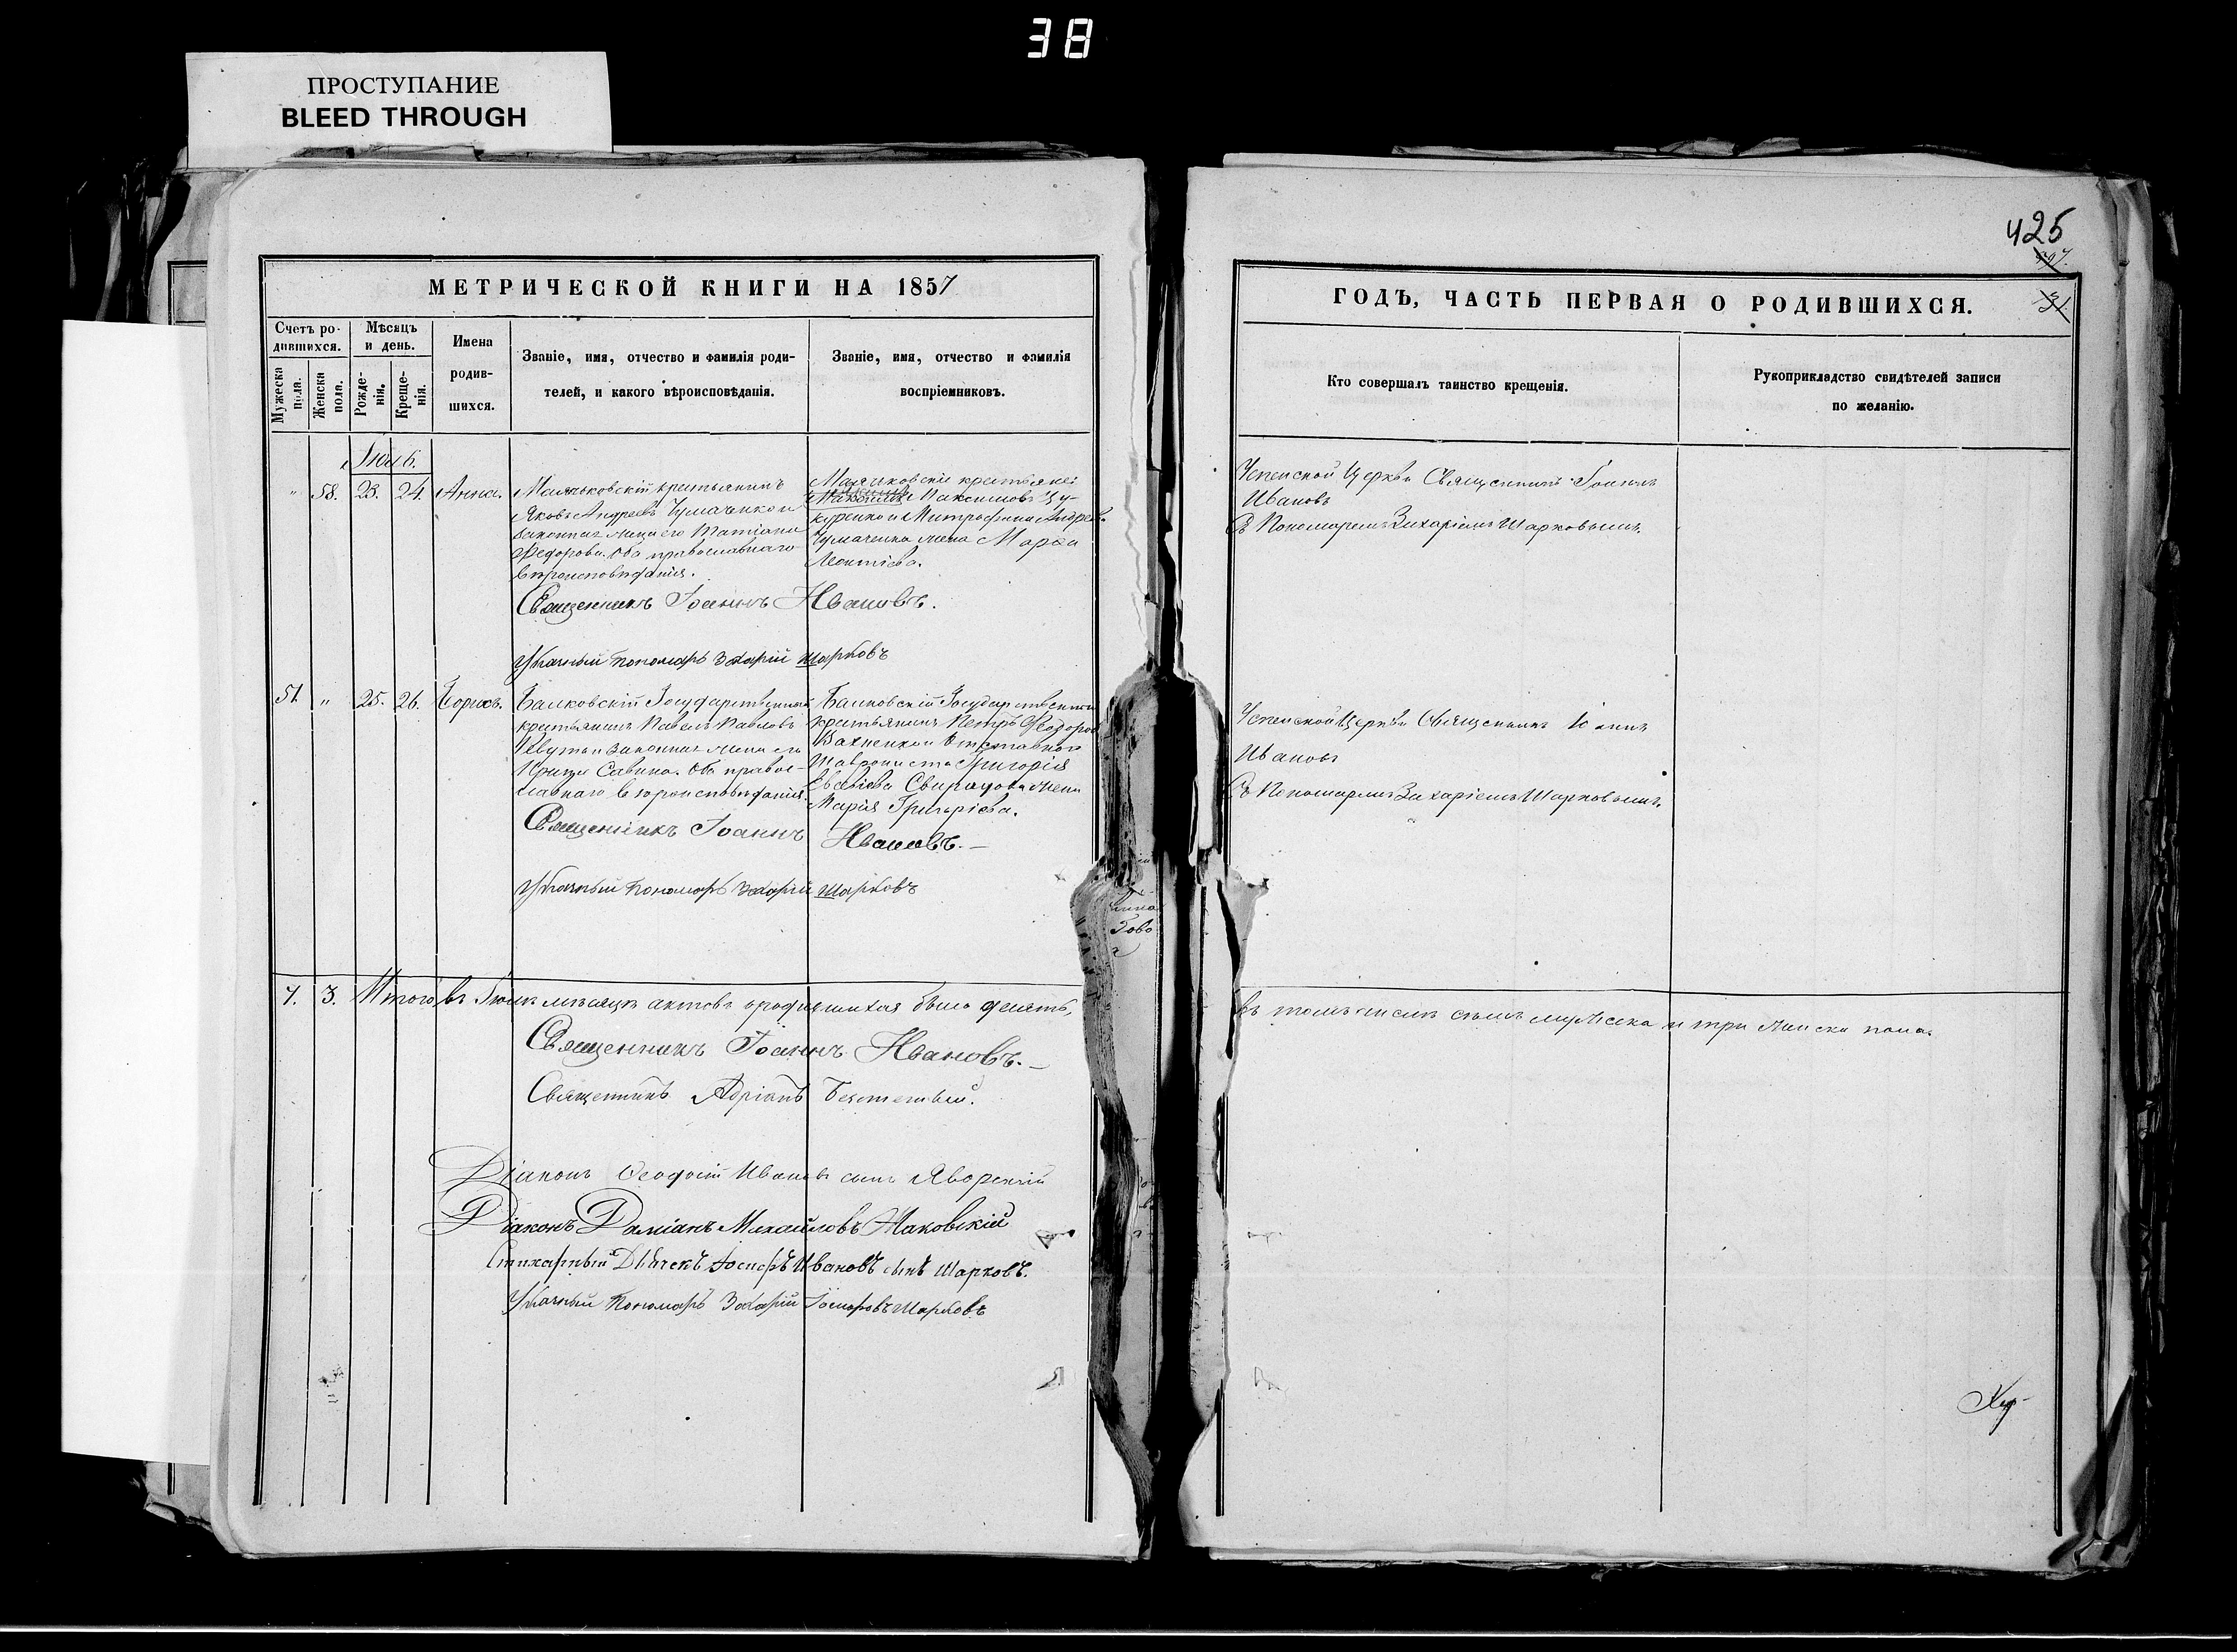 38
ПРОСТУПАНИЕ
BLEED THROUGH
425
МЕТРИЧЕСКОЙ КНИГИ НА 1857
ГОДЪ, ЧАСТЬ ПЕРВАЯ О РОДИВШИХСЯ.
31
Счетъ родившихся.
Мужеска пола.
Женска пола.
Мѣсяцъ и день.
Рожденія.
Крещенія.
Имена родившихся.
Званіе, имя, отчество и фамилія роди-
телей, и какого вѣроисповѣданія.
Званіе, имя, отчество и фамилія
воспріемниковъ.
Кто совершалъ таинство крещенія.
Рукоприкладство свидѣтелей записи
по желанію.
" 58. 23. 24. Анна.
крестьянинъ
Яковъ Андреевъ Чумаченко и
законная жена его Татіана
Федорова. Оба православнаго
вѣроисповѣданія.
крестьяне:
Максимовъ Цу-
куренко и Митрофана Андреева
Чумаченка жена Марѳа
Леонтіева.
Священникъ Іоаннъ Ивановъ.
Указный Пономарь Захарій Шарковъ
Успенской Церкви Священникъ Іоаннъ
Ивановъ
Съ Пономаремъ Захаріемъ Шарковымъ.
51. " 25. 26. Борисъ.
Балковскій Государственный
крестьянинъ Павелъ Павловъ
и законная жена его
Савина. Оба правос-
лавнаго вѣроисповѣданія.
Балковскій Государственный
крестьянинъ Петръ Федоровъ
и отставнаго
Григорія
жена
Марія Григоріева.
Священникъ Іоаннъ Ивановъ.—
Указный Пономарь Захарій Шарковъ
Успенской Церкви Священникъ Іоаннъ
Ивановъ
Съ Пономаремъ Захаріемъ Шарковымъ.
7. 3. Итого въ мѣсяцѣ актовъ о родившихся было десять,
въ томъ числѣ семь мужеска и три женска пола.
Священникъ Іоаннъ Ивановъ.—
Священникъ Адріанъ
Діаконъ Ѳеодосій Ивановъ сынъ Яворскій
Діаконъ Даміанъ Михайловъ Маковскій
Стихарный Дьячекъ Іосифъ Ивановъ сынъ Шарковъ.
Указный Пономарь Захарій Іосифовъ Шарковъ